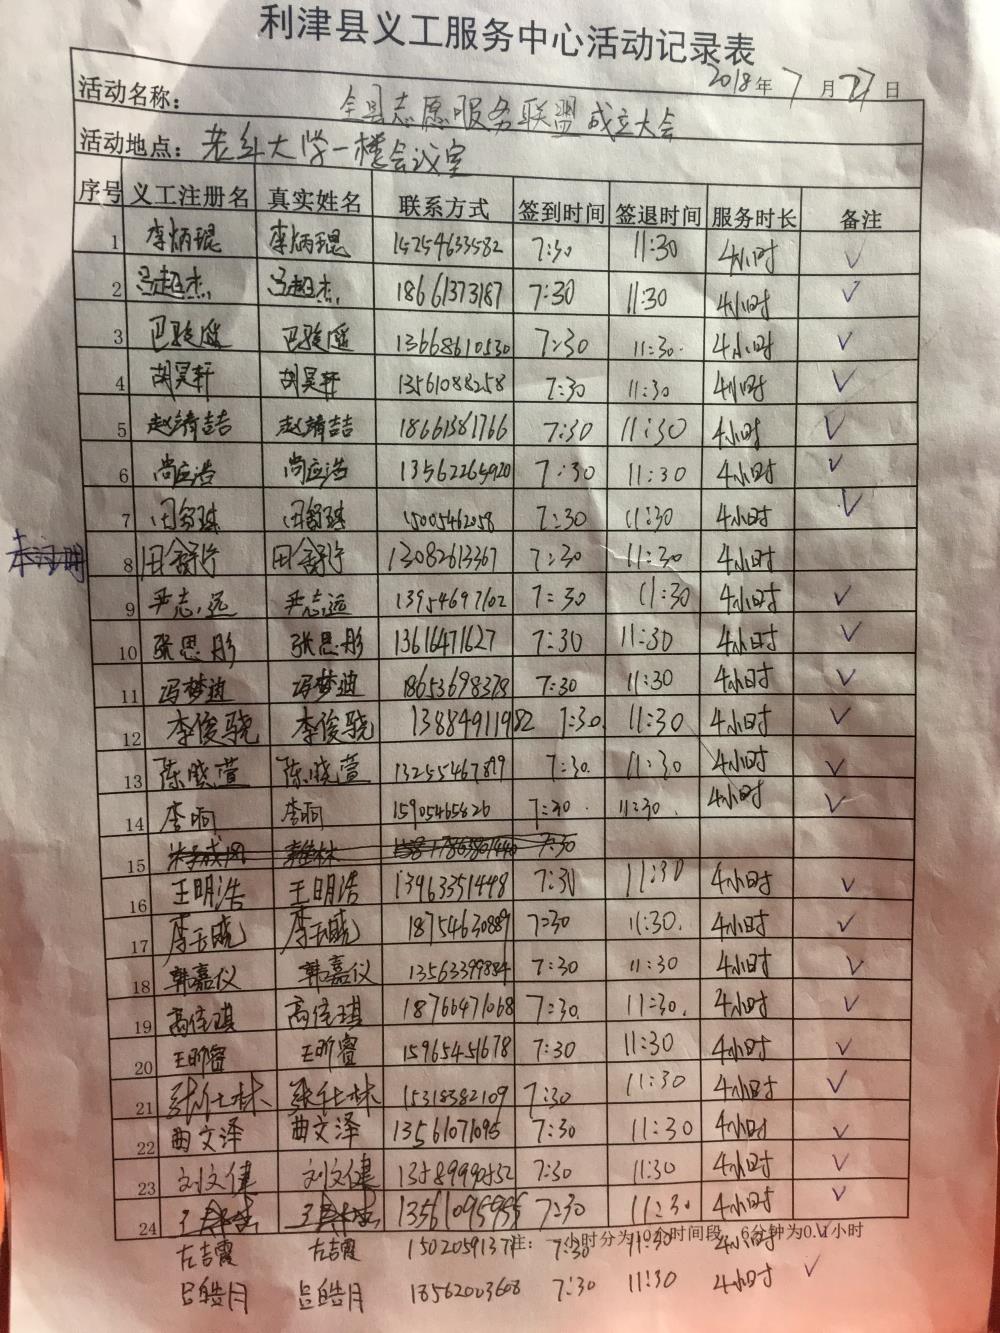 利津县义工服务中心活动记录表
2018年 7 月 27 日
活动名称： 全县志愿服务联盟成立大会
活动地点： 老年大学一楼会议室
序号 义工注册名 真实姓名 联系方式 签到时间 签退时间 服务时长 备注
1 李炳琨 李炳琨 15254633582 7:30 11:30 4小时 √
2 马超杰 马超杰 18661373187 7:30 11:30 4小时 √
3 巴骏遥 巴骏遥 13668610530 7:30 11:30 4小时 √
4 胡昊轩 胡昊轩 13561088258 7:30 11:30 4小时 √
5 赵靖喆 赵靖喆 18661381766 7:30 11:30 4小时 √
6 尚应浩 尚应浩 13562265920 7:30 11:30 4小时 √
7 田舒 田舒 15005462058 7:30 11:30 4小时 √
8 田 田 13082613367 7:30 11:30 4小时
9 尹志远 尹志远 13954697102 7:30 11:30 4小时 √
10 张思彤 张思彤 13616471627 7:30 11:30 4小时 √
11 冯梦迪 冯梦迪 18653698378 7:30 11:30 4小时 √
12 李俊骁 李俊骁 13884911982 7:30 11:30 4小时 √
13 陈晓萱 陈晓萱 13255467899 7:30 11:30 4小时 √
14 李响 李响 15905465826 7:30 11:30 4小时 √
15 7:30
16 王明浩 王明浩 13963351448 7:30 11:30 4小时 √
17 李玉晓 李玉晓 18754630889 7:30 11:30 4小时 √
18 韩嘉仪 韩嘉仪 13563399884 7:30 11:30 4小时 √
19 高佳琪 高佳琪 18766471068 7:30 11:30 4小时 √
20 王昕睿 王昕睿 15965451678 7:30 11:30 4小时 √
21 张仕林 张仕林 15318382109 7:30 11:30 4小时 √
22 曲文泽 曲文泽 13561071095 7:30 11:30 4小时 √
23 刘文健 刘文健 13589990552 7:30 11:30 4小时 √
24 王 王 7:30 11:30 4小时 √
注：一小时分为10个时间段，6分钟为0.1小时
左吉霞 左吉霞 7:30 11:30 4小时
吕皓月 吕皓月 18562003608 7:30 11:30 4小时 √